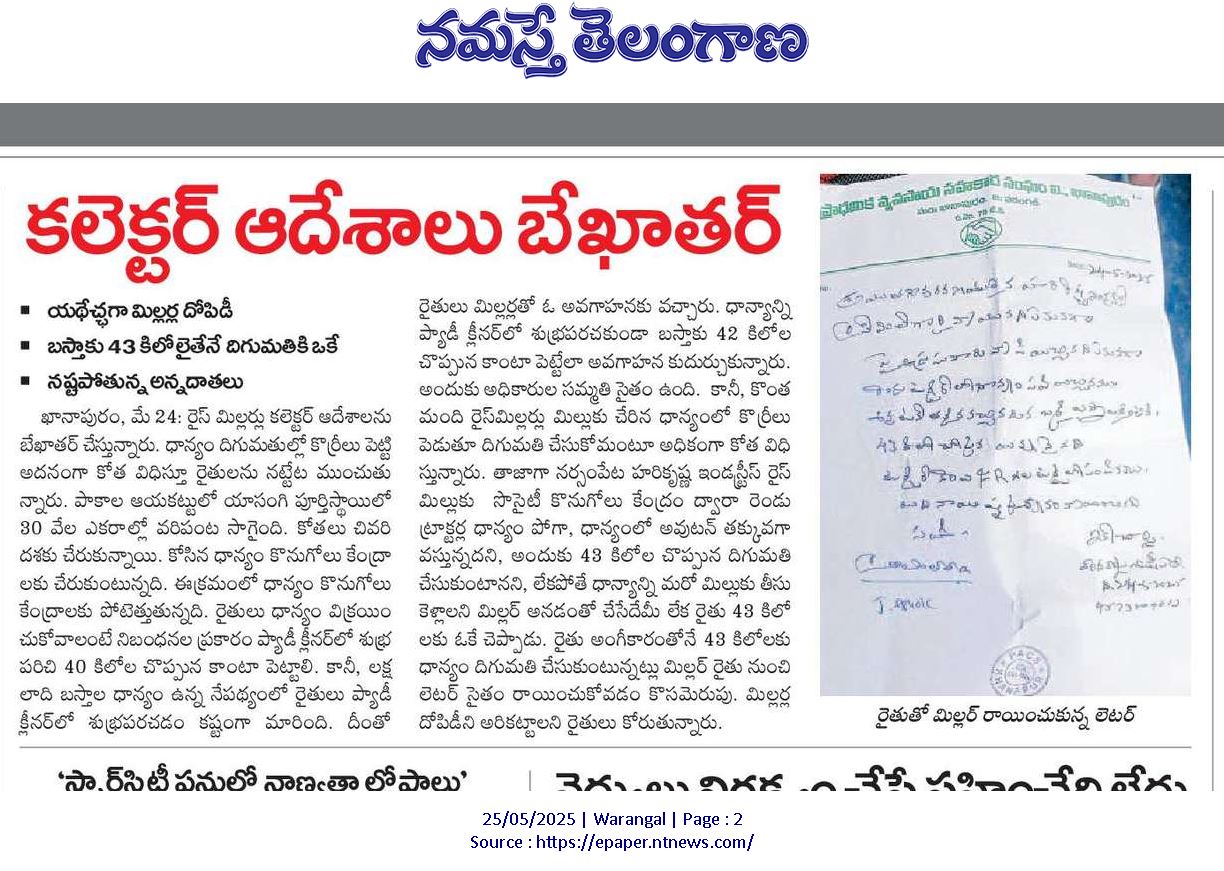 నమస్తే తెలంగాణ
కలెక్టర్ ఆదేశాలు బేఖాతర్
▪ యథేచ్ఛగా మిల్లర్ల దోపిడీ
▪ బస్తాకు 43 కిలోలైతేనే దిగుమతికి ఒకే
▪ నష్టపోతున్న అన్నదాతలు
ఖానాపురం, మే 24: రైస్ మిల్లర్లు కలెక్టర్ ఆదేశాలను
బేఖాతర్ చేస్తున్నారు. ధాన్యం దిగుమతుల్లో కొర్రీలు పెట్టి
అదనంగా కోత విధిస్తూ రైతులను నట్టేట ముంచుతు
న్నారు. పాకాల ఆయకట్టులో యాసంగి పూర్తిస్థాయిలో
30 వేల ఎకరాల్లో వరిపంట సాగైంది. కోతలు చివరి
దశకు చేరుకున్నాయి. కోసిన ధాన్యం కొనుగోలు కేంద్రా
లకు చేరుకుంటున్నది. ఈక్రమంలో ధాన్యం కొనుగోలు
కేంద్రాలకు పోటెత్తుతున్నది. రైతులు ధాన్యం విక్రయిం
చుకోవాలంటే నిబంధనల ప్రకారం ప్యాడీ క్లీనర్‌లో శుభ్ర
పరిచి 40 కిలోల చొప్పున కాంటా పెట్టాలి. కానీ, లక్ష
లాది బస్తాల ధాన్యం ఉన్న నేపథ్యంలో రైతులు ప్యాడీ
క్లీనర్‌లో శుభ్రపరచడం కష్టంగా మారింది. దీంతో
రైతులు మిల్లర్లతో ఓ అవగాహనకు వచ్చారు. ధాన్యాన్ని
ప్యాడీ క్లీనర్‌లో శుభ్రపరచకుండా బస్తాకు 42 కిలోల
చొప్పున కాంటా పెట్టేలా అవగాహన కుదుర్చుకున్నారు.
అందుకు అధికారుల సమ్మతి సైతం ఉంది. కానీ, కొంత
మంది రైస్‌మిల్లర్లు మిల్లుకు చేరిన ధాన్యంలో కొర్రీలు
పెడుతూ దిగుమతి చేసుకోమంటూ అధికంగా కోత విధి
స్తున్నారు. తాజాగా నర్సంపేట హరికృష్ణ ఇండస్ట్రీస్ రైస్
మిల్లుకు సొసైటీ కొనుగోలు కేంద్రం ద్వారా రెండు
ట్రాక్టర్ల ధాన్యం పోగా, ధాన్యంలో అవుటన్ తక్కువగా
వస్తున్నదని, అందుకు 43 కిలోల చొప్పున దిగుమతి
చేసుకుంటానని, లేకపోతే ధాన్యాన్ని మరో మిల్లుకు తీసు
కెళ్లాలని మిల్లర్ అనడంతో చేసేదేమీ లేక రైతు 43 కిలో
లకు ఓకే చెప్పాడు. రైతు అంగీకారంతోనే 43 కిలోలకు
ధాన్యం దిగుమతి చేసుకుంటున్నట్లు మిల్లర్ రైతు నుంచి
లెటర్ సైతం రాయించుకోవడం కొసమెరుపు. మిల్లర్ల
దోపిడీని అరికట్టాలని రైతులు కోరుతున్నారు.
ప్రాథమిక వ్యవసాయ సహకార సంఘం లి., ఖానాపురం
రైతుతో మిల్లర్ రాయించుకున్న లెటర్
25/05/2025 | Warangal | Page : 2
Source : https://epaper.ntnews.com/